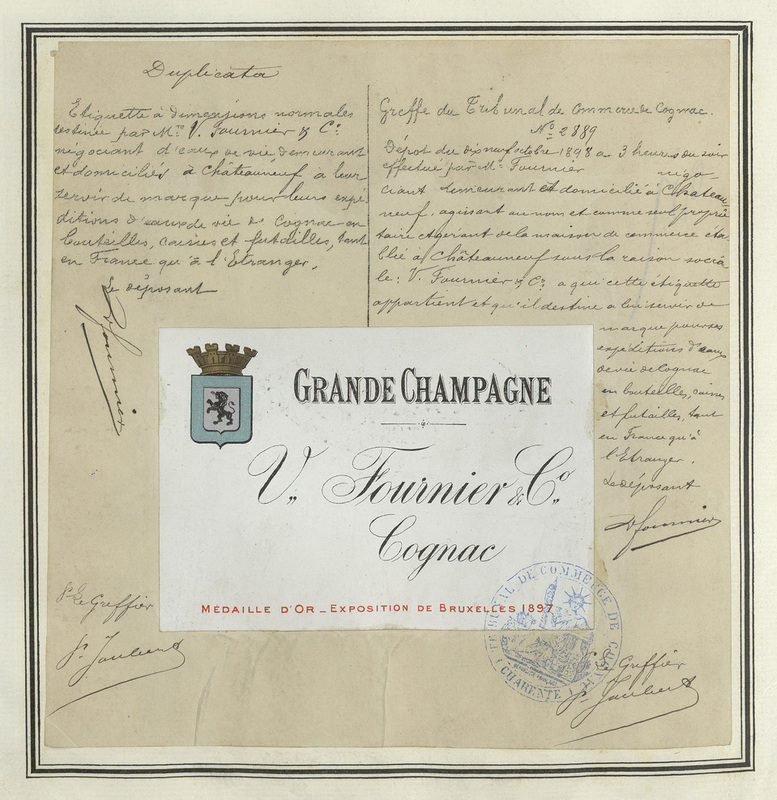 Duplicata
Etiquette à dimensions normales
destinée par Mrs V. Fournier & Co
négociant d'eaux de vie demeurant
et domiciliés à Châteauneuf a leur
servir de marque pour leurs expé
ditions d'eaux de vie de Cognac en
bouteilles, caisses et futailles, tant
en France qu'à l'Etranger.
Le déposant
VFournier
Greffe du Tribunal de Commerce de Cognac.
No 2889
Dépôt du dix neuf octobre 1898 a 3 heures du soir
effectué par Mr Fournier négo-
ciant demeurant et domicilié à Chateau
neuf, agissant au nom et comme seul proprié
taire et gérant de la maison de commerce éta
blie à Châteauneuf sous la raison socia
le: V. Fournier & Co a qui cette étiquette
appartient et qu'il destine a lui servir de
marque pour ses
expéditions d'eaux
de vie de Cognac
en bouteilles, caisses
et futailles, tant
en France qu'à
l'Etranger.
Le déposant
VFournier
GRANDE CHAMPAGNE
V. Fournier & Co.
Cognac
MÉDAILLE D'OR _ EXPOSITION DE BRUXELLES 1897
Le Greffier
Joubert
TRIBUNAL DE COMMERCE DE COGNAC
(CHARENTE)
Greffier
Joubert